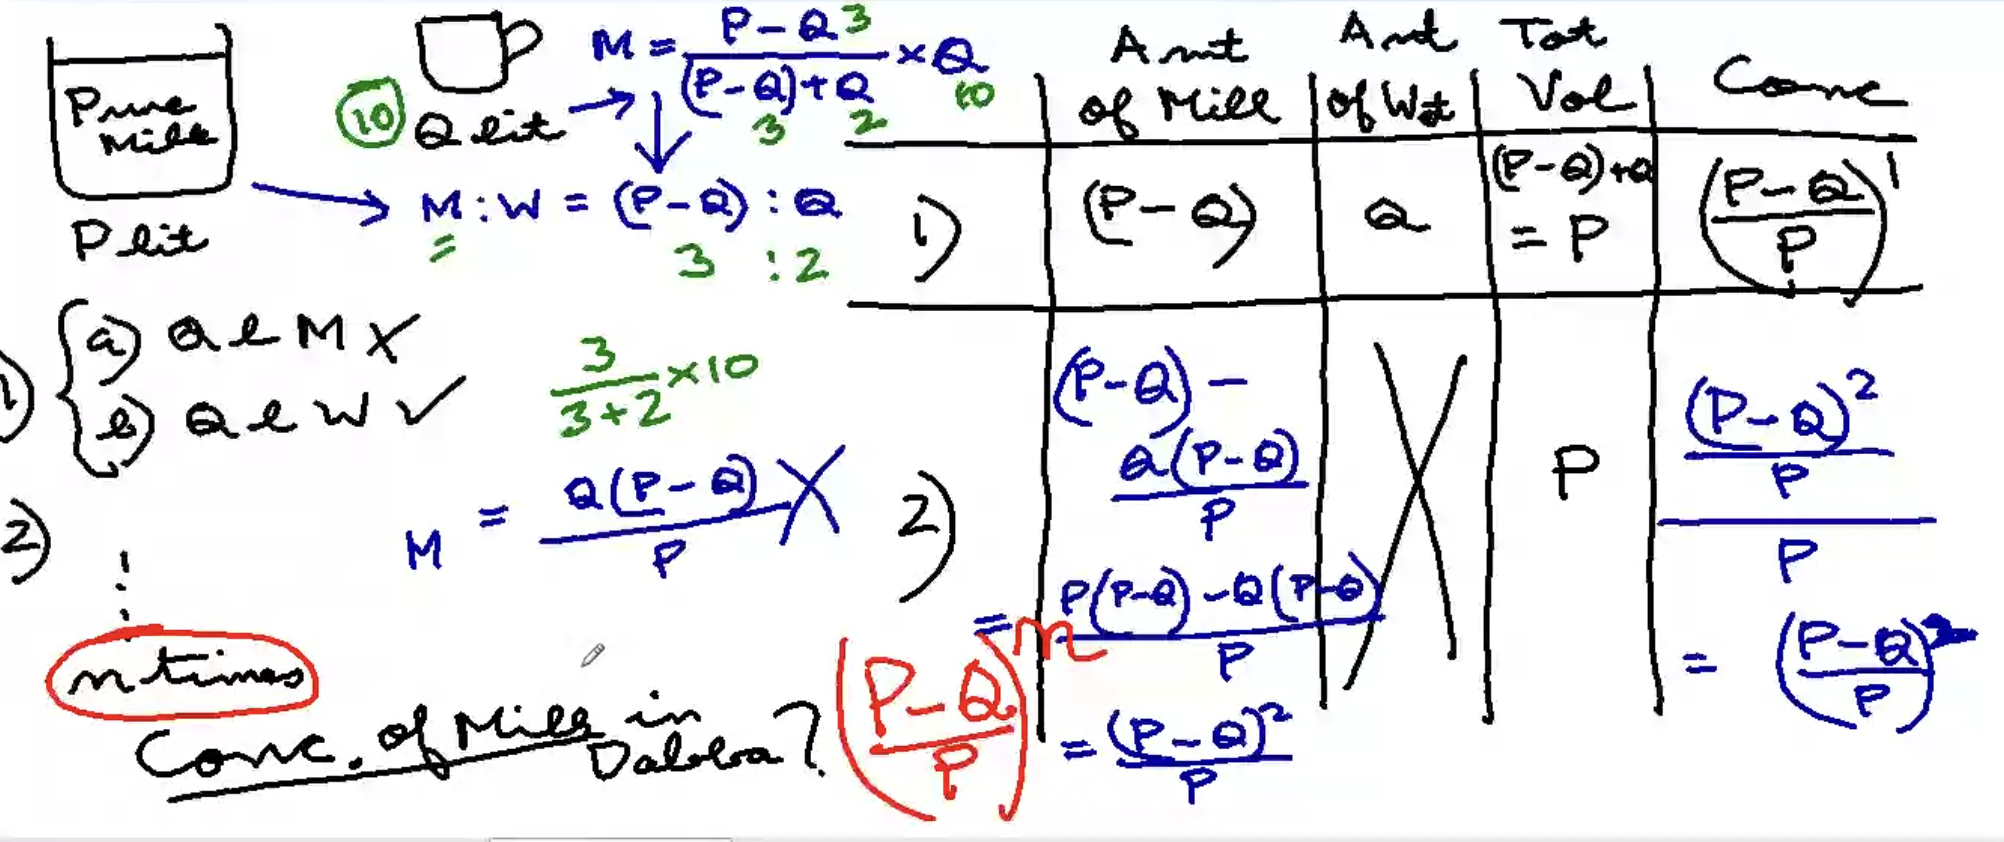 Pure
Milk
P lit
10
Q lit
M = P - Q / (P - Q) + Q × Q
3
3 2
10
M : W = (P - Q) : Q
=
3 : 2
1) { a) Q l M X
b) Q l W ✓
3 / 3+2 × 10
M = Q(P - Q) / P
2)
⋮
n times
Conc. of Milk in
Dabba?
((P - Q) / P)^n
Amt
of Milk
Amt
of Wt
Tot
Vol
Conc
1)
(P - Q)
Q
(P - Q) + Q
= P
((P - Q) / P)^1
2)
(P - Q) -
Q(P - Q) / P
= P(P-Q) - Q(P-Q) / P
= (P - Q)^2 / P
P
(P - Q)^2 / P / P
= ((P - Q) / P)^2